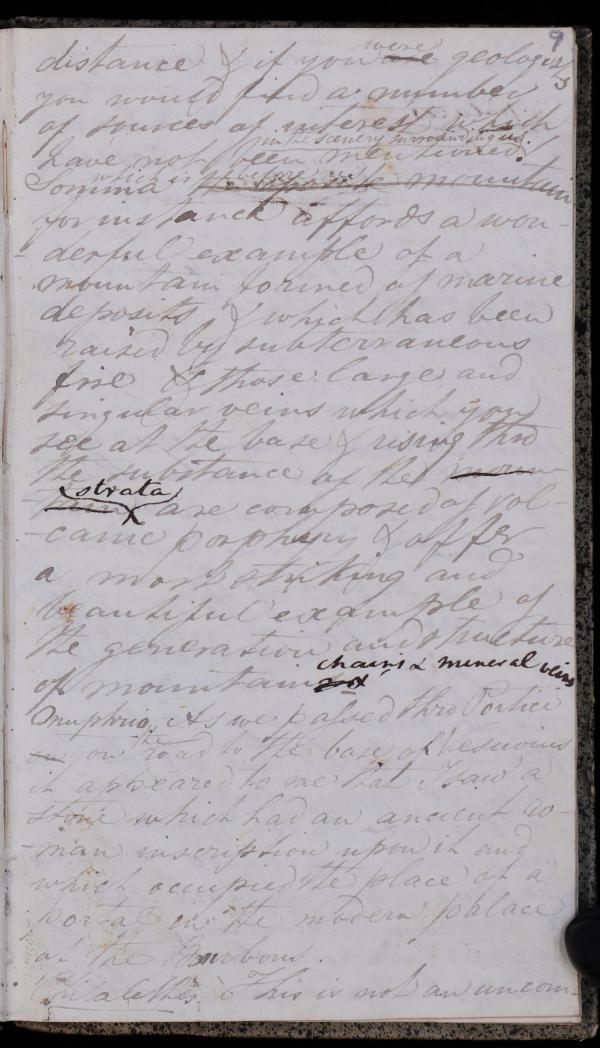 9
distance & if you were are geologists
you would find a number
of sources of interest which
in the scenery surrounding us.
have not been mentioned!
which is before us
Somma the opposite mountain
for instance affords a won-
-derful example of a
mountain formed of marine
deposits & which has been
raised by subterraneous
fire & those large and
singular veins which you
see at the base & rising thro
the substance of the moun-
strata
-tain are composed of vol-
-canic porphyry & offer
a most striking and
beautiful example of
the generation and structure
chains & mineral veins
of mountains
Onuphrio. As we passed thro Portici
on on road to the base of Vesuvius
it appeared to me that I saw a
stone which had an ancient ro-
-man inscription upon it and
which occupied the place of a
portal in the modern palace
of the Bourbons.
Philalethes. This is not an uncom-